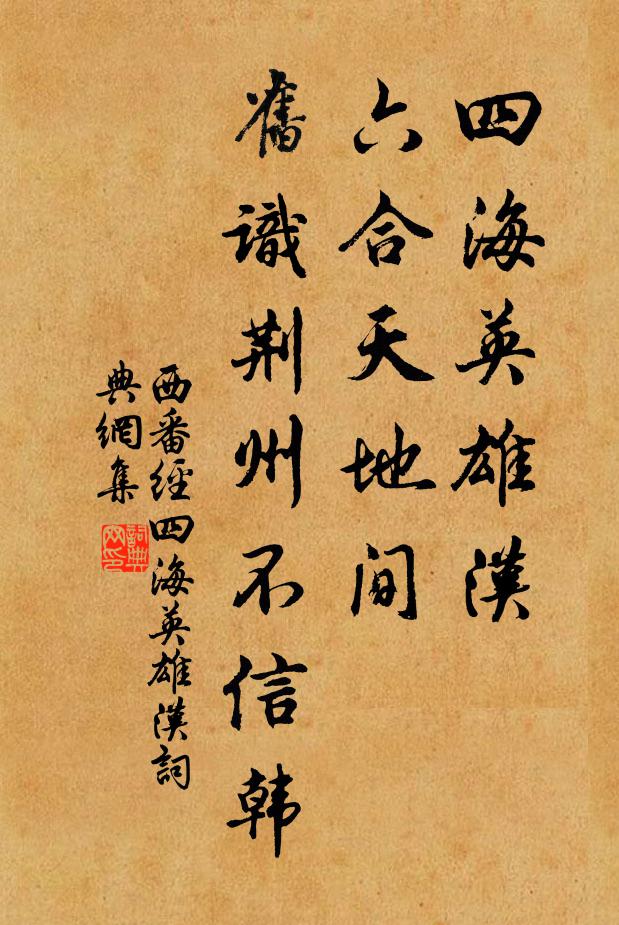 四海英雄漢
六合天地間
舊識荆州不信韓
西番經四海英雄漢詞
典網集
詞典
网印